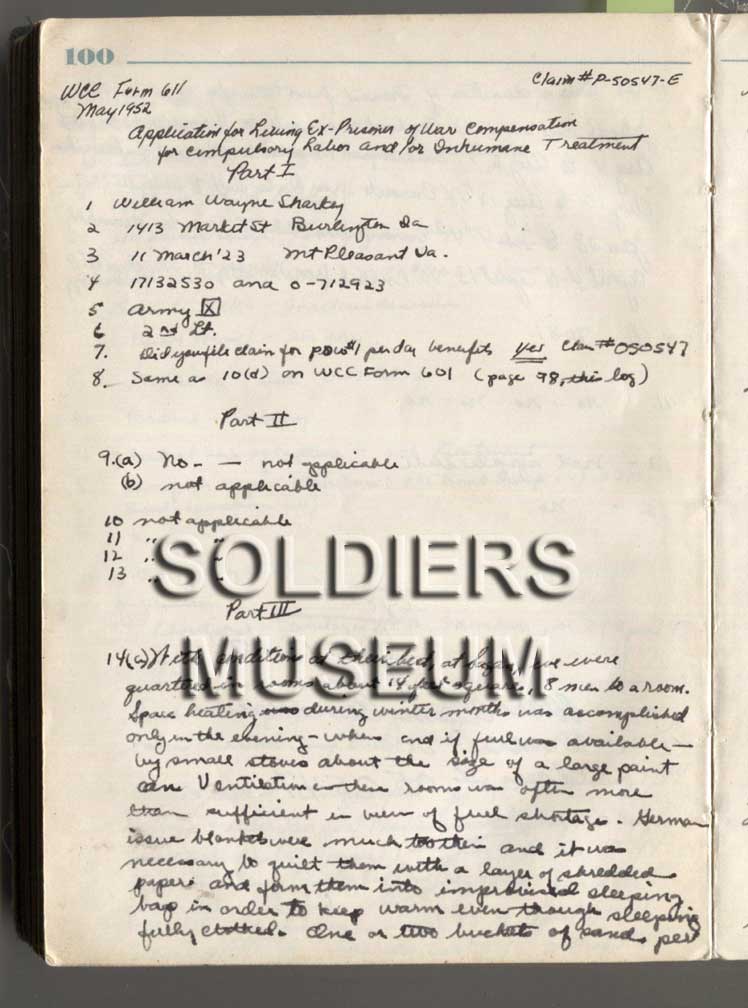 100
Claim # P-50547-E
WCC Form 611
May 1952
Application for Living Ex-Prisoner of War Compensation
for Compulsory Labor and/or Inhumane Treatment
Part I
1 William Wayne Sharkey
2 1413 Market St Burlington Ia
3 11 March '23 Mt Pleasant Ia.
4 17132530 and O-712923
5 Army X
6 2nd Lt.
7. Did you file claim for POW $1 per day benefits yes Claim # 050547
8. Same as 10(d) on WCC Form 601 (page 98, this log)
Part II
9.(a) No - — not applicable
(b) not applicable
10 not applicable
11 " "
12 " "
13 " "
SOLDIERS
MUSEUM
Part III
14(c) conditions at we were
quartered in rooms about 14 feet square, 8 men to a room.
Space heating during winter months was accomplished
only in the evening - when and if fuel was available —
by small stoves about the size of a large paint
can. Ventilation in these rooms was often more
than sufficient in view of fuel shortage. German
issue blankets were much too thin and it was
necessary to quilt them with a layer of shredded
paper and form them into improvised sleeping
bag in order to keep warm even though sleeping
fully clothed. One or two buckets of sand per